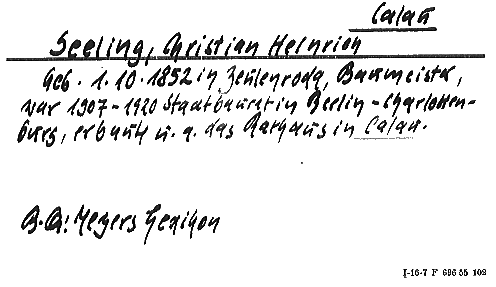 Calau
Seeling, Christian Heinrich
Geb. 1.10.1852 in Zeulenroda, Baumeister,
war 1907-1920 Stadtbaurat in Berlin-Charlotten-
burg, erbaute u. a. das Rathaus in Calau.
B.Qu: Meyers Lexikon
I-16-7 F 696 55 102